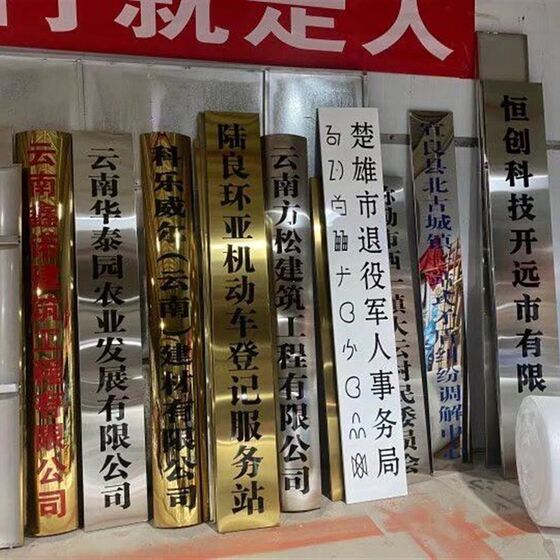 就是人
云南鑫建筑工程有限公司
云南华泰园农业发展有限公司
科乐威尔（云南）建材有限公司
陆良环亚机动车登记服务站
云南方松建筑工程有限公司
楚雄市退役军人事务局
勒市西镇大云村民委员会
宜良县北古城镇纠纷调解中心
恒创科技开远市有限